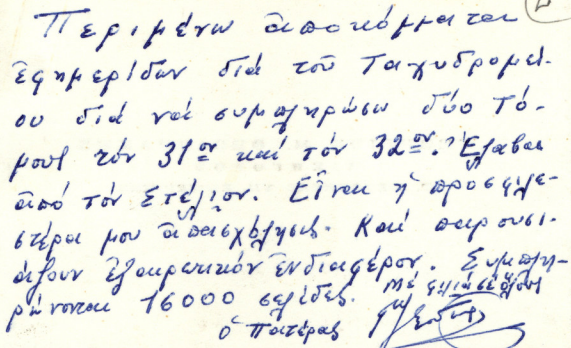 Περιμένω ἀποκόμματα
ἐφημερίδων διά τοῦ Ταχυδρομεί-
ου διά νά συμπληρώσω δύο τό-
μους τόν 31ον καί τόν 32ον. Ἔλαβα
ἀπό τόν Στέλιον. Εἶναι ἡ προσφιλε-
στέρα μου ἀπασχόλησις. Καί παρουσι-
άζουν ἐξαιρετικόν ἐνδιαφέρον. Συμπλη-
ρώνονται 16000 σελίδες. Μέ
ὁ Πατέρας